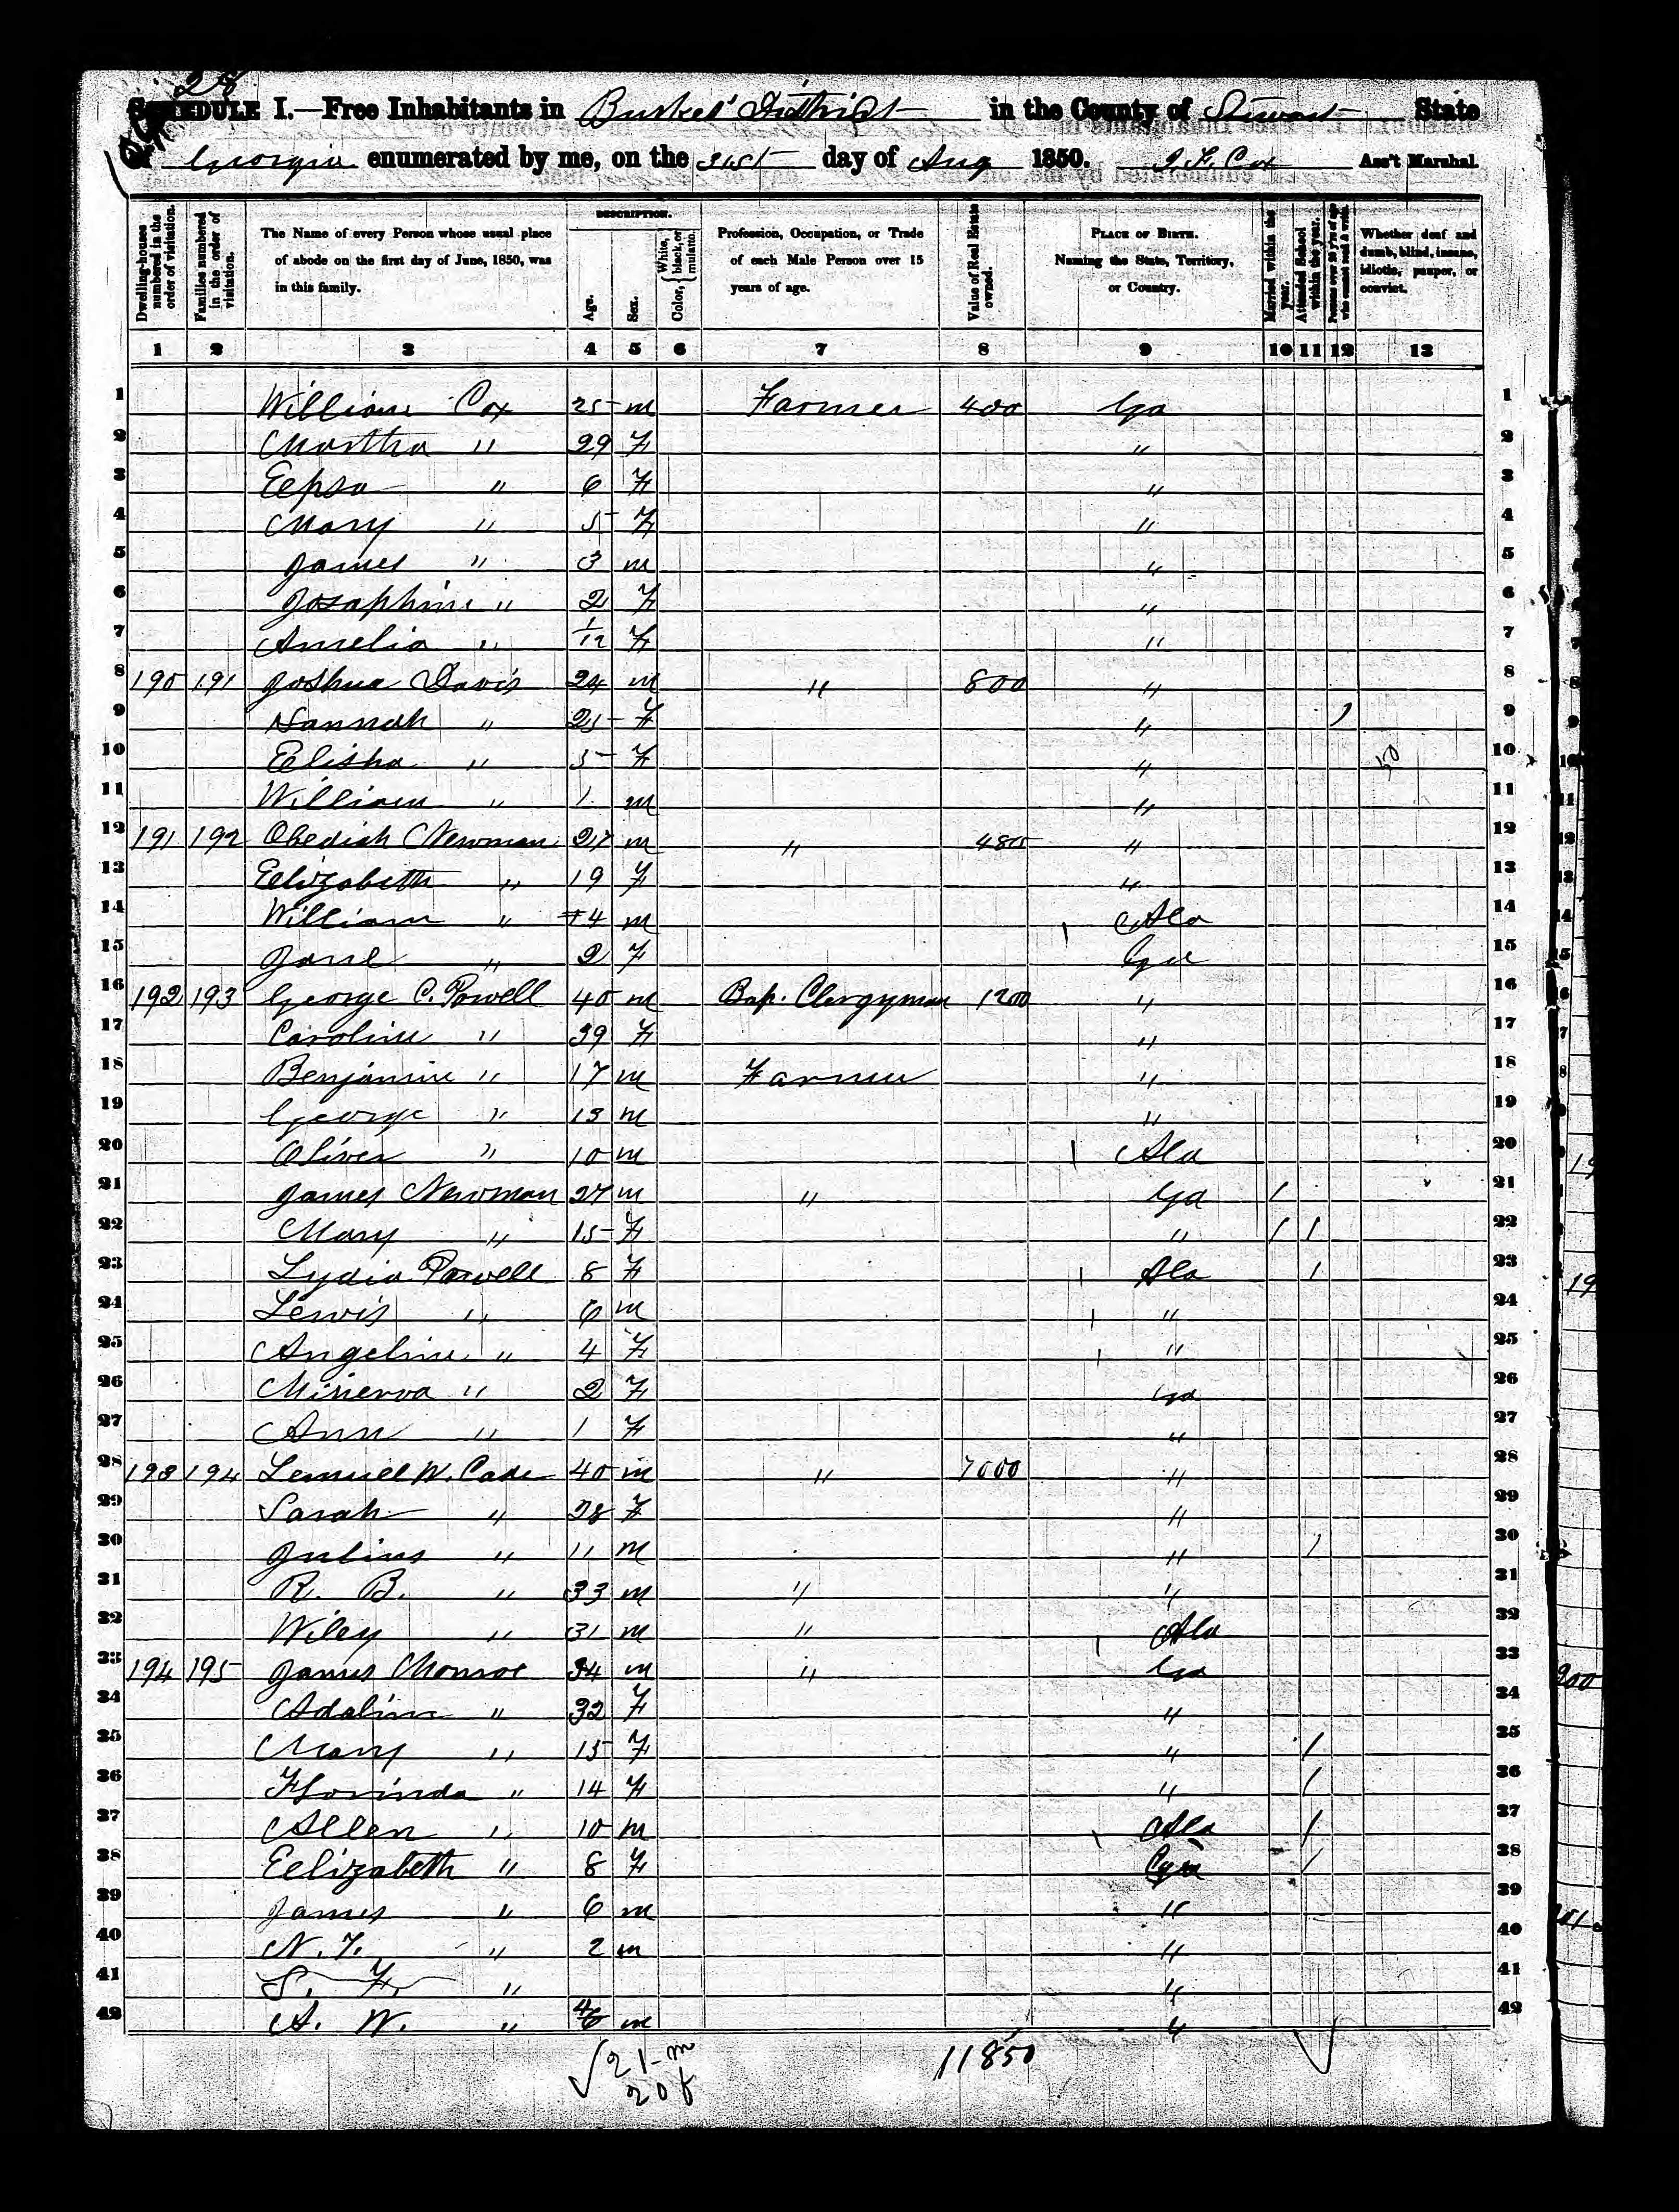 28
SCHEDULE I.—Free Inhabitants in District in the County of Stewart State
of Georgia enumerated by me, on the 31st day of Aug 1850. Cox Ass't Marshal.
Dwelling-houses numbered in the order of visitation.
Families numbered in the order of visitation.
The Name of every Person whose usual place of abode on the first day of June, 1850, was in this family.
DESCRIPTION.
Age.
Sex.
Color, { White, black, or mulatto.
Profession, Occupation, or Trade of each Male Person over 15 years of age.
Value of Real Estate owned.
PLACE OF BIRTH. Naming the State, Territory, or Country.
Married within the year.
Attended School within the year.
Persons over 20 y'rs of age who cannot read & write.
Whether deaf and dumb, blind, insane, idiotic, pauper, or convict.
1 2 3 4 5 6 7 8 9 10 11 12 13
1 William Cox 25 m Farmer 400 Ga 1
2 Martha " 29 F " 2
3 Eepsa " 6 F " 3
4 Mary " 5 F " 4
5 James " 3 m " 5
6 Josaphine " 2 F " 6
7 Amelia " 1/12 F " 7
8 190 191 Joshua Davis 24 m " 800 " 8
9 Hannah " 25 F " / 9
10 Elisha " 5 F " 50 10
11 William " 1 m " 11
12 191 192 Obediah Newman 27 m " " 12
13 Eelizabeth " 19 F " 13
14 William " 4 m Ala 14
15 Jane " 2 F Ga 15
16 192 193 George C. Powell 40 m Bap. Clergyman 1200 " 16
17 Caroline " 39 F " 17
18 Benjamine " 17 m Farmer " 18
19 George " 13 m " 19
20 Oliver " 10 m Ala 20
21 James Newman 27 m " Ga / 21
22 Mary " 15 F " / / 22
23 Lydia Powell 8 F Ala / 23
24 Lewis " 6 m " 24
25 Angeline " 4 F " 25
26 Minerva " 2 F Ga 26
27 Ann " 1 F " 27
28 193 194 Lemuel W. Cade 40 m " 7000 " 28
29 Sarah " 28 F " 29
30 Julius " 11 m " / 30
31 R. B. " 33 m " " 31
32 Wiley " 31 m " Ala 32
33 194 195 James Monroe 34 m " Ga 33
34 Adaline " 32 F " 34
35 Mary " 15 F " / 35
36 Florinda " 14 F " / 36
37 Allen " 10 m Ala / 37
38 Eelizabeth " 8 F Ga / 38
39 James " 6 m " 39
40 N. T. " 2 m " 40
41 S. F. " " 41
42 A. W. " m " 42
21-m 11850
20 f